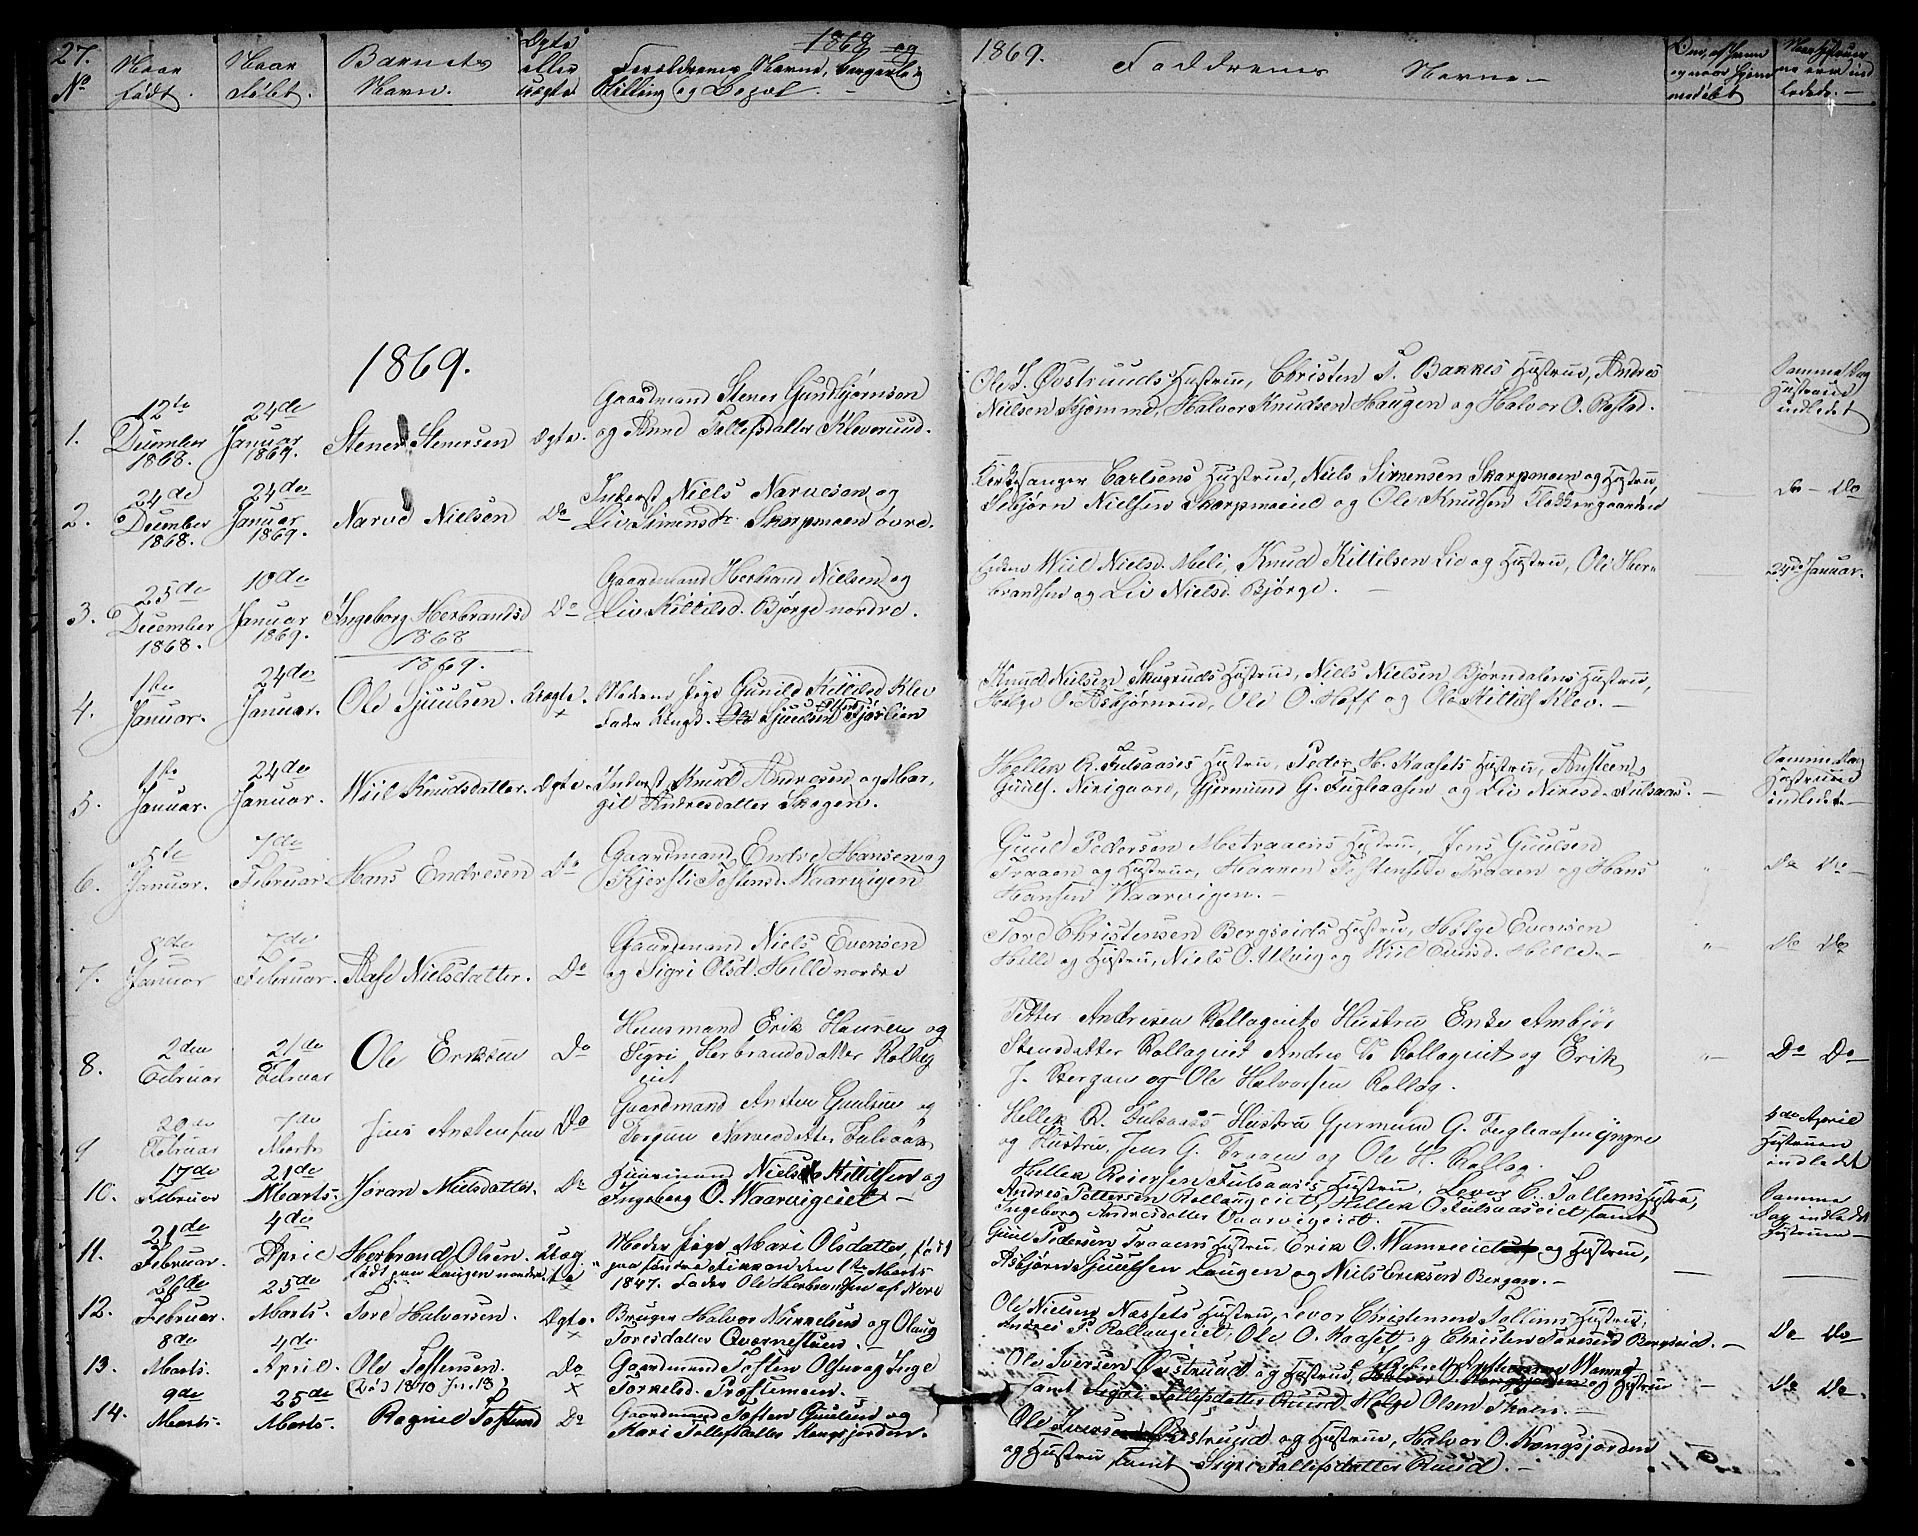 27.
No
Naar
født.
Naar
døbt.
Barnets
Navn.
Ægte
eller
uægte
1868 og
Forældrenes Navne, borgerlig
Stilling og Bopæl. —
1869.
Faddernes Navne —
1869.
1.
12te
December
1868.
24de
Januar
1869.
Stener Stenersen
Ægte.
Gaardmand Stener Gundbjørnson
og Anne Tollefsdatter Kleverud.
Ole T. Øvstruuds Hustrue, Christen T. Bakkes Hustrue, Andres
Nielsen Skjømme, Halvor Knudsen Haugen og Halvor O.
Samme Dag
Hustruen
indledet
2.
24de
December
1868.
24de
Januar
1869.
Narve Nielsen
Do
Inderst Niels Narvesen og
Liv Simensdr. Skarpmoen øvre.
Kirkesanger Carlsens Hustrue, Niels Simensen Skarpmoen og Hustru,
Nielsen Skarpmoeie og Ole Knudsen Klokkergaarden
Do — Do
3.
25de
December
1868.
10de
Januar
1869.
Ingeborg Herbrandsd
1868
Do
Gaardmand Herbrand Nielsen og
Liv Kittilsd. Bjørge nordre.
Wiil Nielsd. Meli, Knud Kittilsen Lio og Hustrue, Ole Her-
brandsen og Liv Nielsd. Bjørge. —
24de Januar.
1869.
4.
1ste
Januar.
24de
Januar.
Ole Sjuulsen.
Uægte.
Moderen Pige Gunild Kittilsd Klev
Fader Ungk. Sjuulsen
Knud Nielsen Skugruds Hustrue, Niels Nielsen Bjørndalens Hustrue,
Helge O. Asbjørnrud, Ole O. Hoff og Ole Kittils. Klev. —
5.
1ste
Januar.
24de
Januar.
Wiil Knudsdatter.
Ægte.
Inderst Knud Andresen og Mar-
git Andresdatter Skogen.
Hellek R. Fulsaases Hustrue, Peder H. Kaasets Hustrue, Ansteen
Guuls. Nerigaard, Gjermund G. Fugleaasen og Liv Niresd. Fulsaas.
Samme Dag
Hustruen
indledet —
6.
5te
Januar.
7de
Februar.
Hans Endresen
Do
Gaardmand Endre Hansen og
Kjersti Tostensd. Waarvigen
Guul Pedersen Hustrue, Jens Guulsen
Traaen og Hustrue, Haaken Tostensen Traaen og Hans
Hansen Waarvigen. —
Do Do —
7.
8de
Januar
7de
Februar.
Aase Nielsdatter.
Do
Gaardmand Niels Evensen
og Sigri Olsd. Helle nordre
Tore Christensen Bergseids Hustrue, Helge Evensen
Helle og Hustrue, Niels O. Ulvig og Wiil Evensd. Helle. —
Do Do
8.
2den
Februar
21de
Februar
Ole Eriksen
Do
Huusmand Erik Hansen og
Sigri Herbrandsdatter Rollag
eiet
Petter Andresen Rollageiets Hustru Enke Ambjør
Stensdatter Rollageiet Andre Rollageiet og Erik
J. Bergan og Ole Halvorsen Rollag.
Do Do —
9
20de
Februar
7de
Marts
Jens Anstensen
Do
Gaardmand Ansten Guulsen og
Torgun Narvesdatter Fulsaas
Hellek R. Fulsaas's Hustru Gjermund G. Fugleaasen yngre
og Hustru, Jens G. Traaen og Ole H. Rollag.
4de April
Hustruen
indledet
10.
17de
Februar
21de
Marts.
Jøran Nielsdatter.
Do
Huusmand Niels Kittilsen og
Ingeborg O. Waarvigeiet —
Hellek Reiersen Fulsaas's Hustrue, Levor C. Tollefs Hustrue,
Andres Pettersen Rollaugeiet, Hellek O. Fulsaaseiet samt
Ingeborg Andresdatter Vaarvigeiet.
Samme
Dag indledet
Hustruen —
11.
21de
Februar.
4de
April
Herbrand Olsen.
født paa Laugen nordre
Uæg-
te
Moder Pige Mari Olsdatter, født
paa søndre den 1ste Marts
1847. Fader Ole Herbrandsen af Nore
Guul Pedersen Traaens Hustrue. Erik O. Wamreiet og Hustrue,
Asbjørn Gjuulsen Laugen og Niels Eriksen Bergan. —
12.
26de
Februar.
25de
Marts.
Tore Halvorsen.
Ægte.
Bruger Halvor Mikkelsen og Olaug
Toresdatter Qvernestuen.
Ole Nielsen Næssets Hustrue, Levor Christensen Tollefs Hustrue,
Andres P. Rollaugeiet, Ole O. Kaaset og Christen Toresen Bergseid. —
Do Do —
13.
8de
Marts.
4de
April.
Ole Tostensen.
(Død 1870 )
Do
Gaardmand Tosten Olsen og Inge
Torkelsd. Præstemoen.
Ole Iversen Øvstruud og Hustrue, og Hustrue
samt Sigri Tollefsdatter Ruud, Helge Olsen —
Do Do —
14.
9de
Marts.
25de
Marts.
Ragnil Tostensd
Do
Gaardmand Tosten Guulsen og
Kari Tollefsdatter Kongsjorden.
Ole Iversen Øvstruud og Hustrue, Halvor O. Kongsjorden
og Hustrue samt Sigri Tollefsdatter Ruud. —